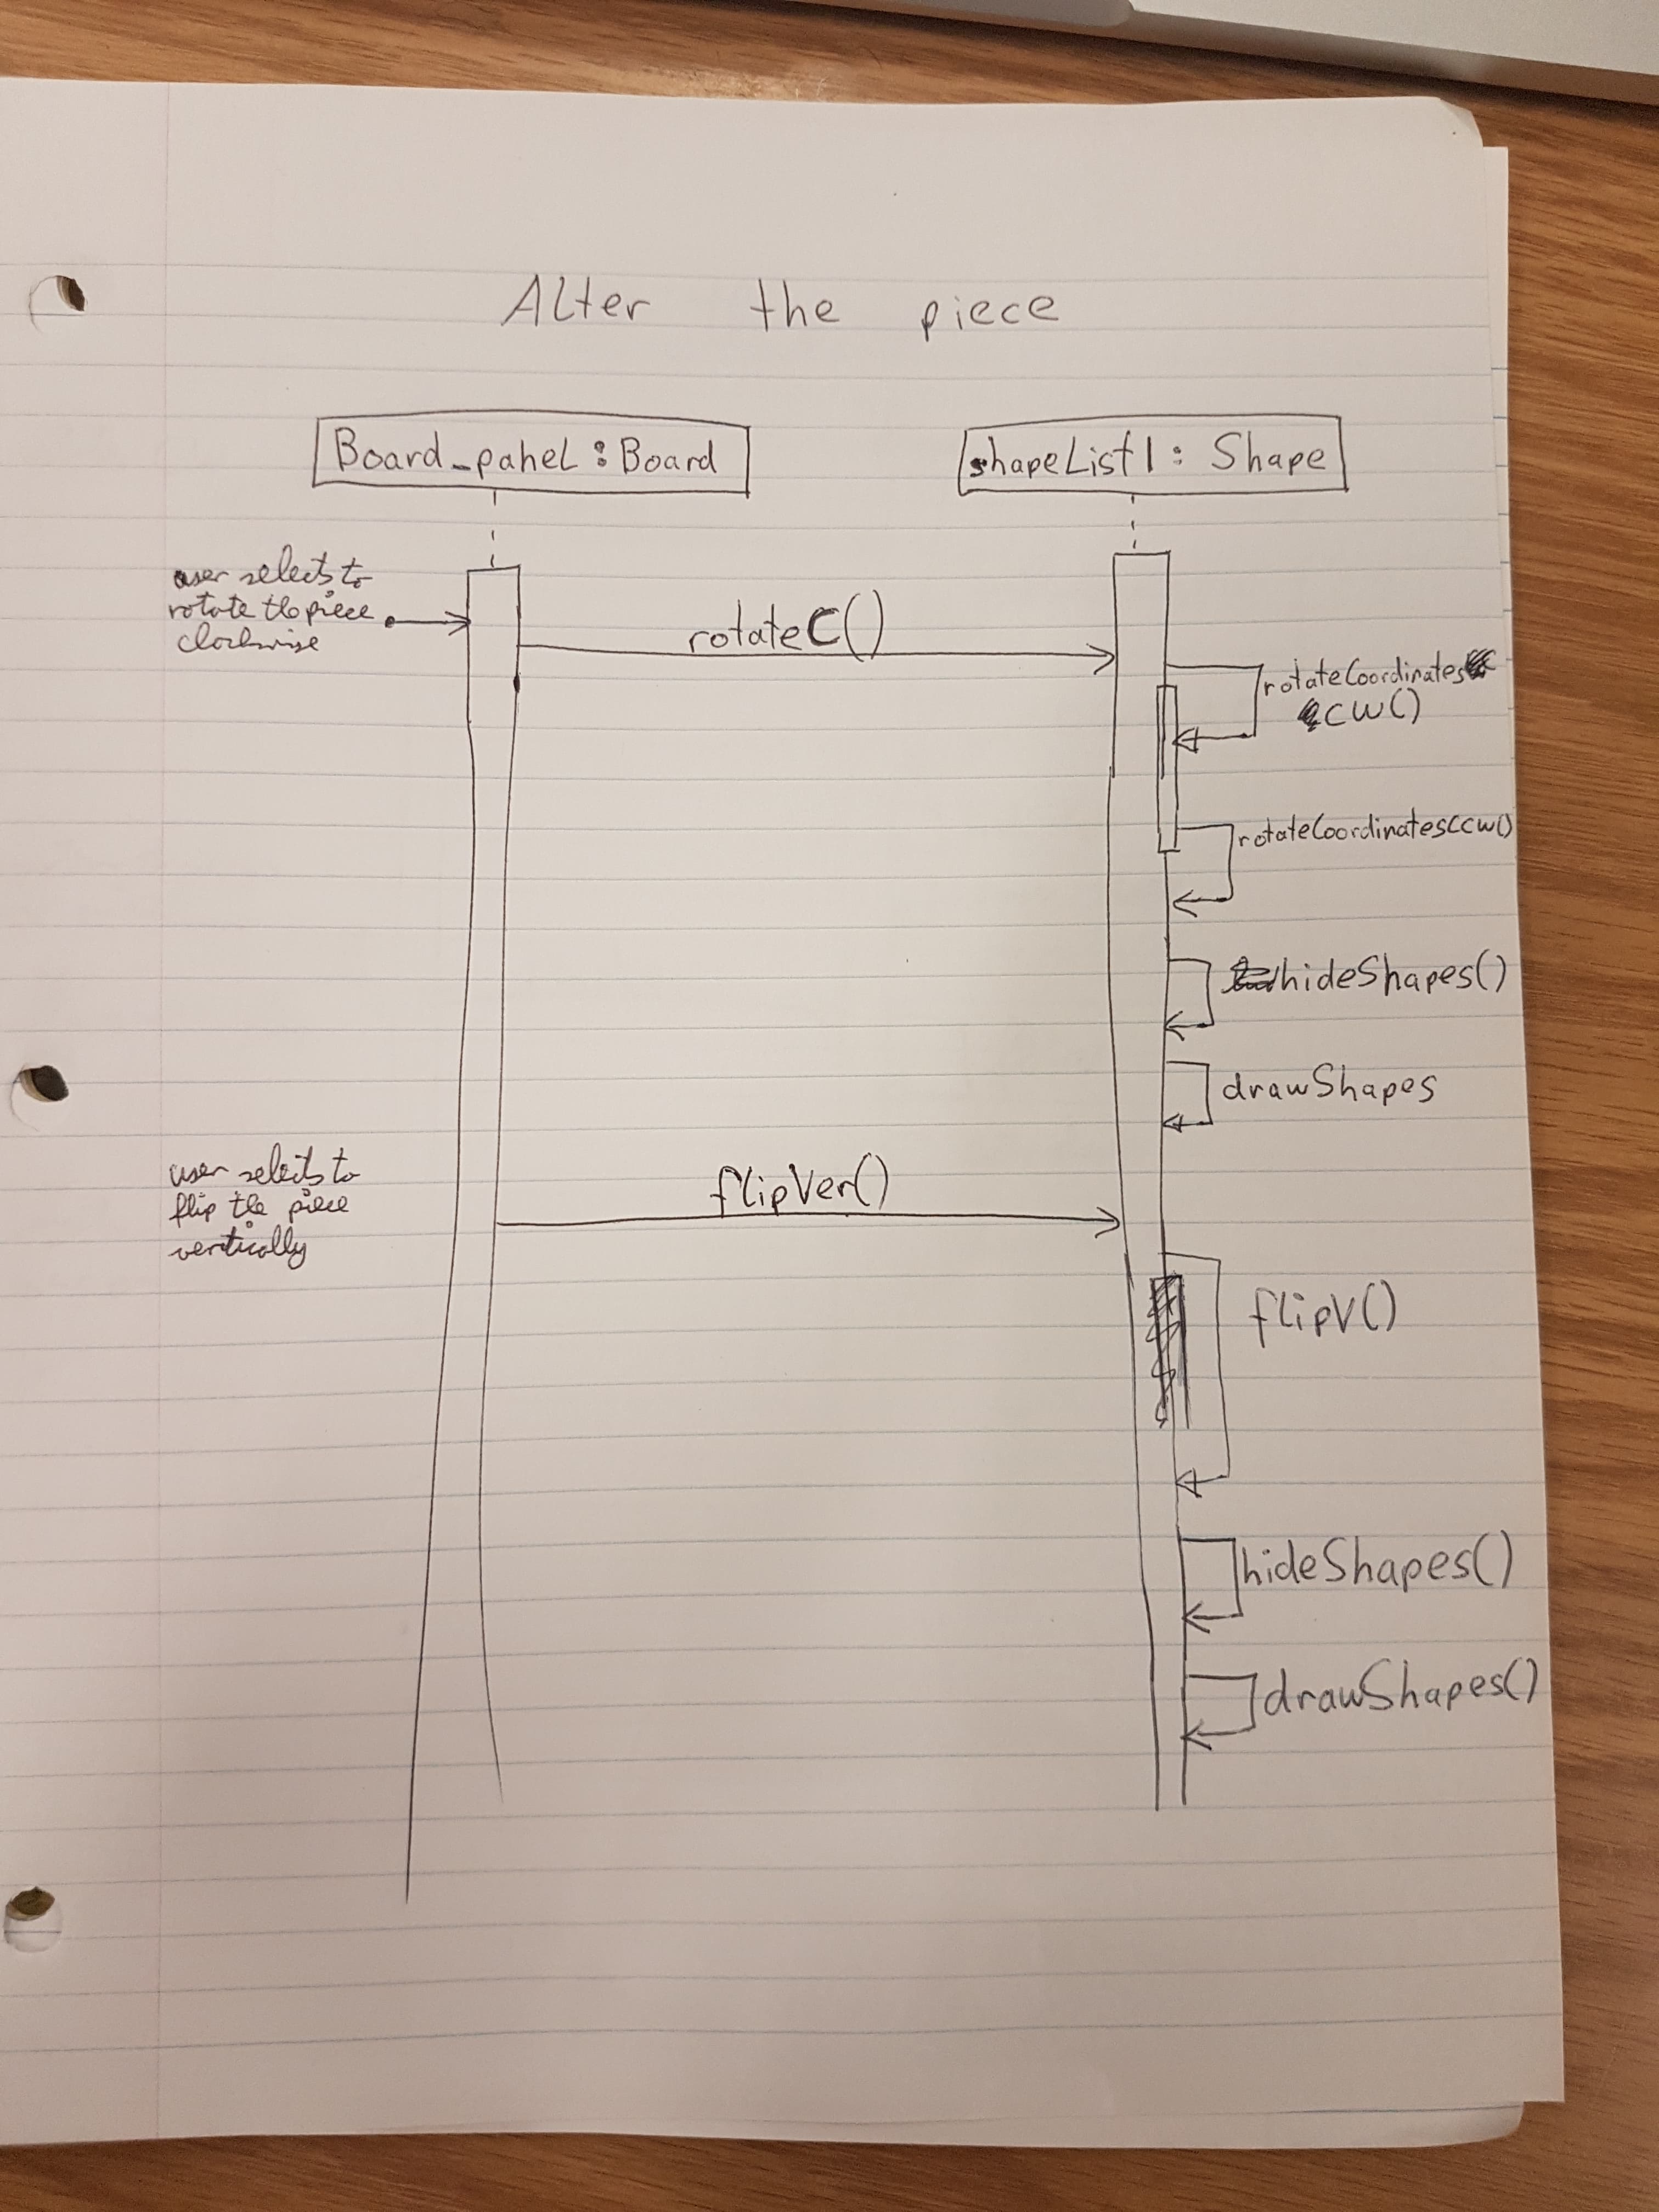 Alter the piece
Board_panel : Board
shapeList1 : Shape
user selects to
rotate the piece
clockwise
rotateC()
rotateCoordinates
CW()
rotateCoordinatesCCW()
hideShapes()
drawShapes
user selects to
flip the piece
vertically
flipVer()
flipV()
hideShapes()
drawShapes()